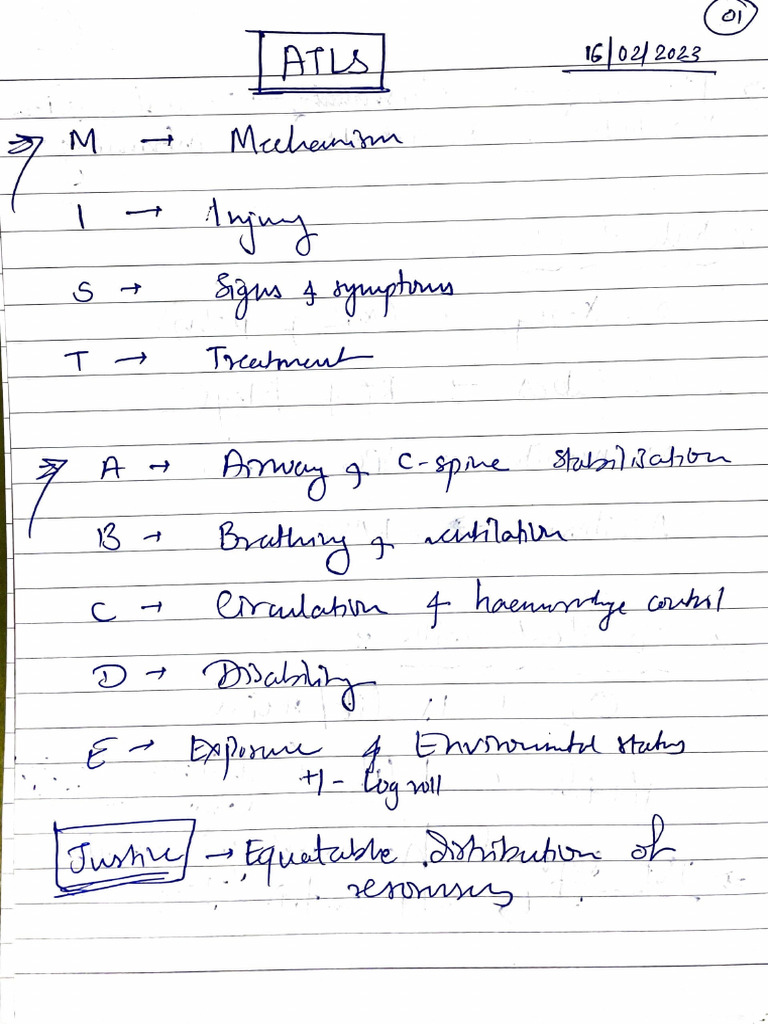 01
ATLS
16/02/2023
M → Mechanism
I → Injury
S → Signs & symptoms
T → Treatment
A → Airway & C-spine stabilisation
B → Breathing & ventilation
C → Circulation & haemorrhage control
D → Disability
E → Exposure & Environmental status
+/- Log roll
Justice → Equatable distribution of
resources